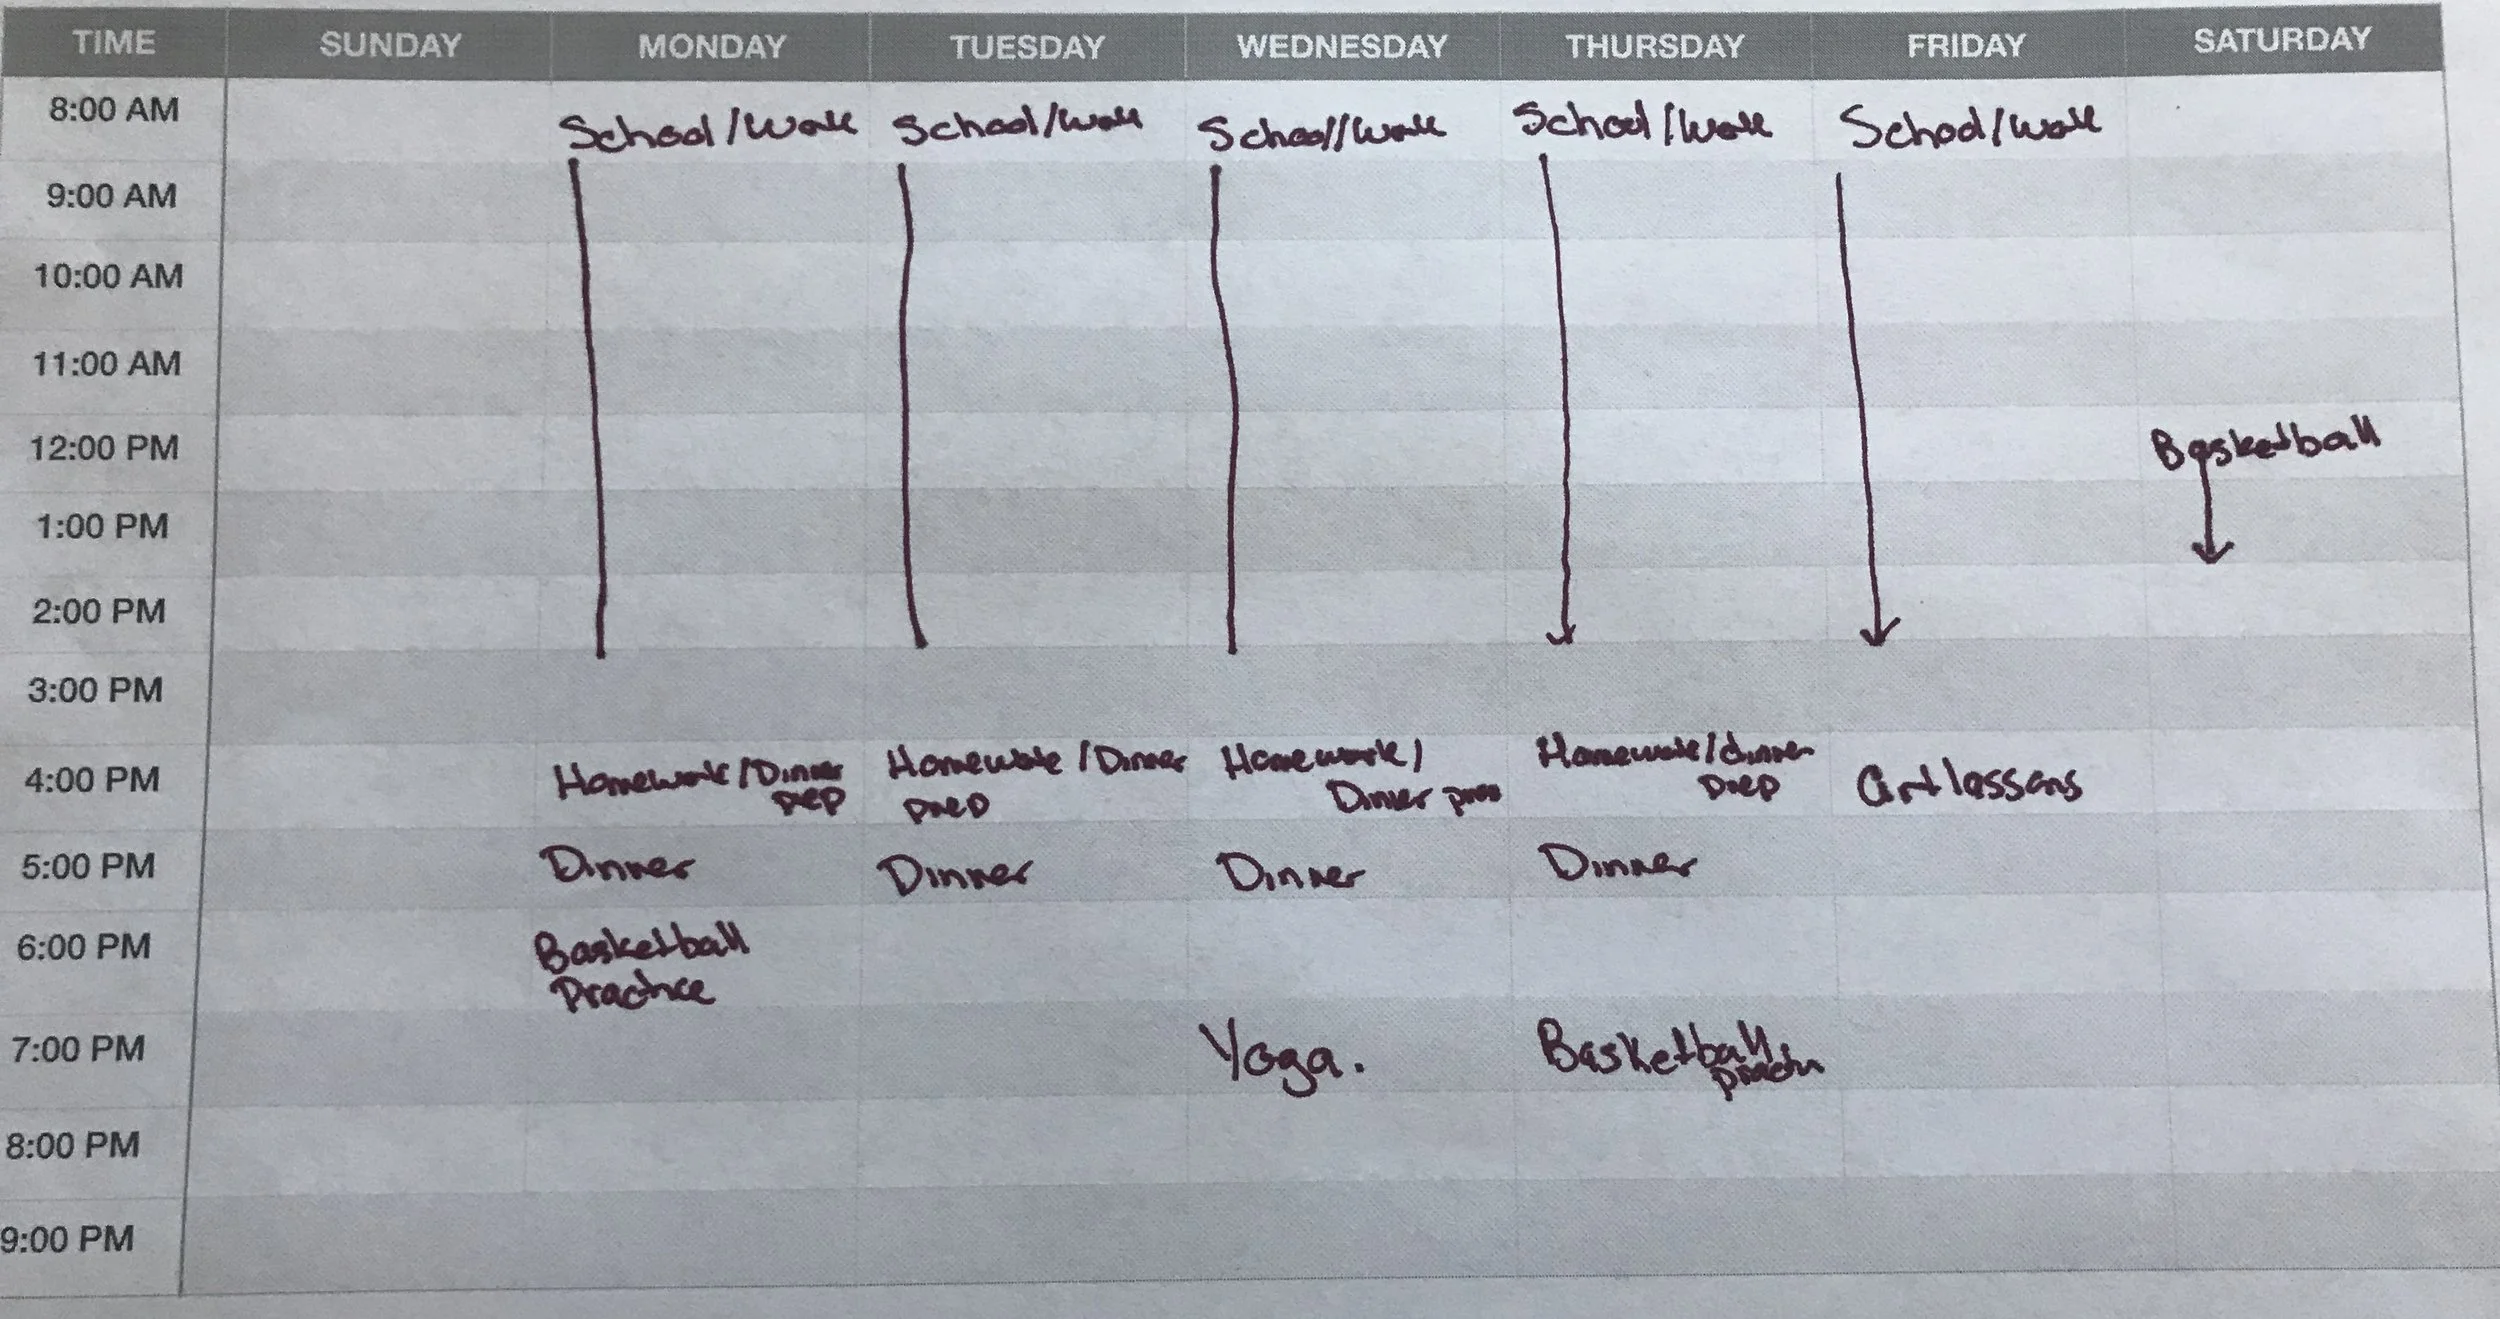 TIME SUNDAY MONDAY TUESDAY WEDNESDAY THURSDAY FRIDAY SATURDAY
8:00 AM School/Work School/Work School/Work School/Work School/Work
9:00 AM
10:00 AM
11:00 AM
12:00 PM Basketball
1:00 PM
2:00 PM
3:00 PM
4:00 PM Homework/Dinner Homework/Dinner Homework/ Homework/dinner Art lessons
prep prep Dinner prep prep
5:00 PM Dinner Dinner Dinner Dinner
6:00 PM Basketball
Practice
7:00 PM Yoga. Basketball
8:00 PM
9:00 PM